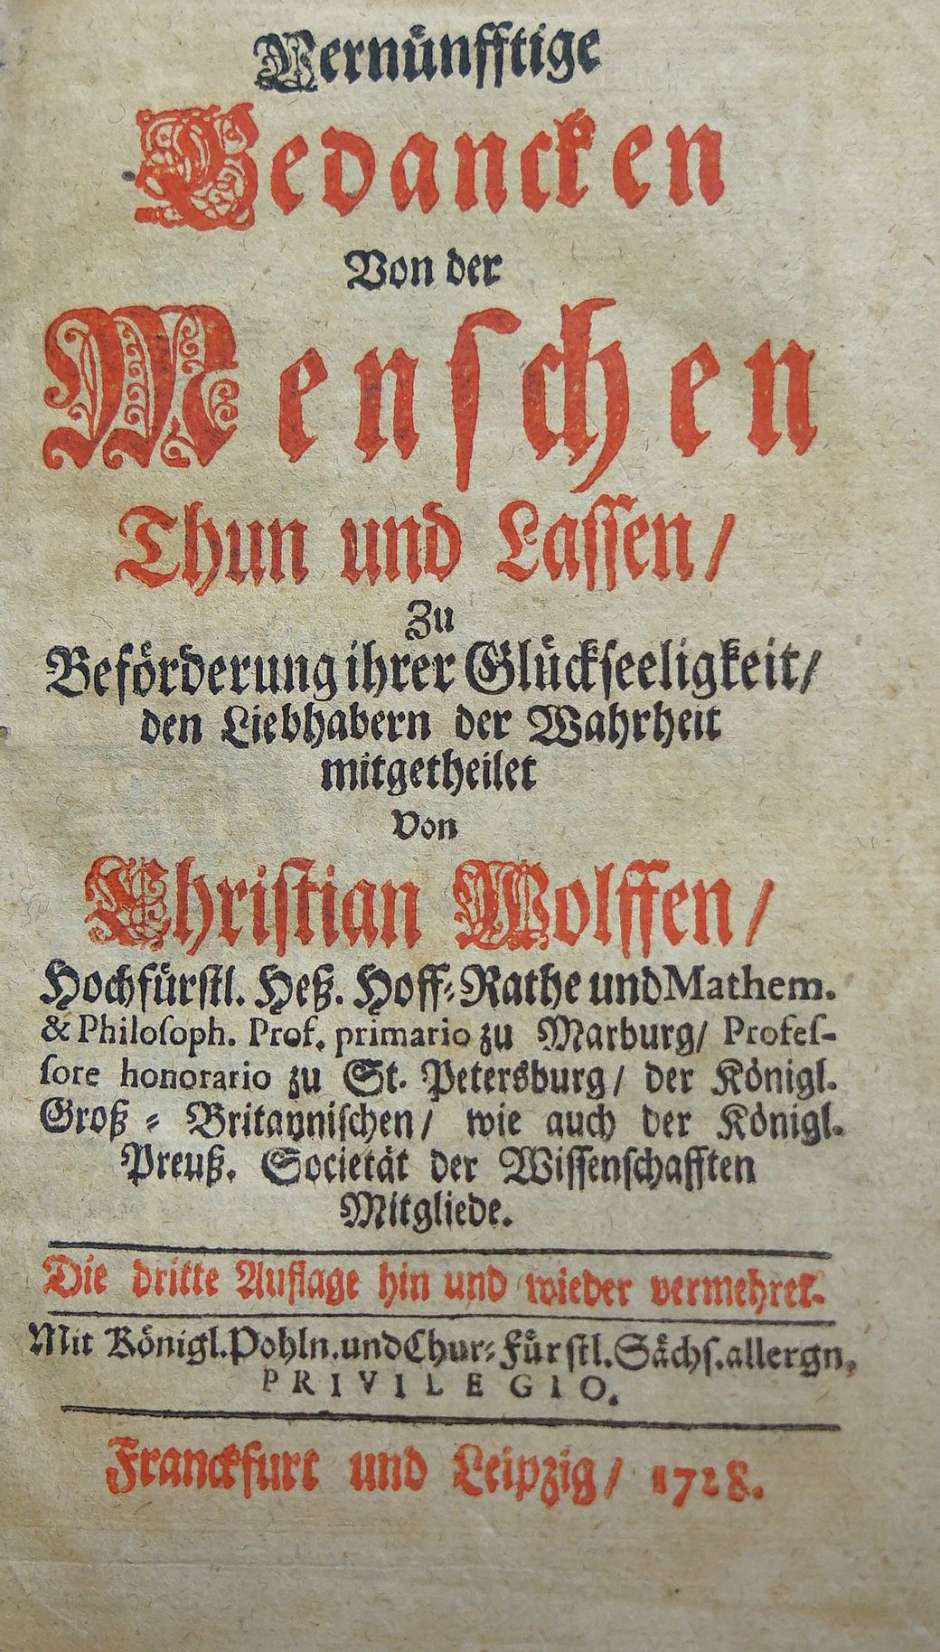 Vernünfftige
Gedancken
Von der
Menschen
Thun und Lassen/
Zu
Beförderung ihrer Glückseeligkeit/
den Liebhabern der Wahrheit
mitgetheilet
Von
Christian Wolffen/
Hochfürstl. Heß. Hoff-Rathe und Mathem.
& Philosoph. Prof. primario zu Marburg/ Profes-
sore honorario zu St. Petersburg/ der Königl.
Groß-Britannischen/ wie auch der Königl.
Preuß. Societät der Wissenschafften
Mitgliede.
Die dritte Auflage hin und wieder vermehret.
Mit Königl. Pohln. und Chur-Fürstl. Sächs. allergn.
PRIVILEGIO.
Franckfurt und Leipzig/ 1728.